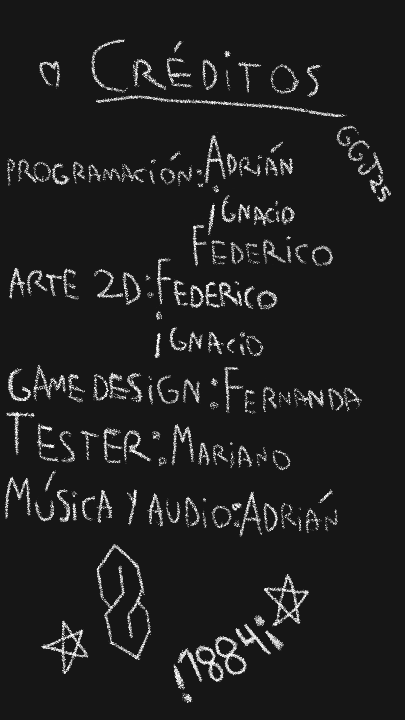 CRÉDiTOS
GGJ25
PROGRAMACiÓN:ADRiÁN
iGNACiO
FEDERiCO
ARTE 2D:FEDERiCO
iGNACiO
GAME DESiGN:FERNANDA
TESTER:MARiANO
MÚSiCA Y AUDiO:ADRiÁN
¡1884!